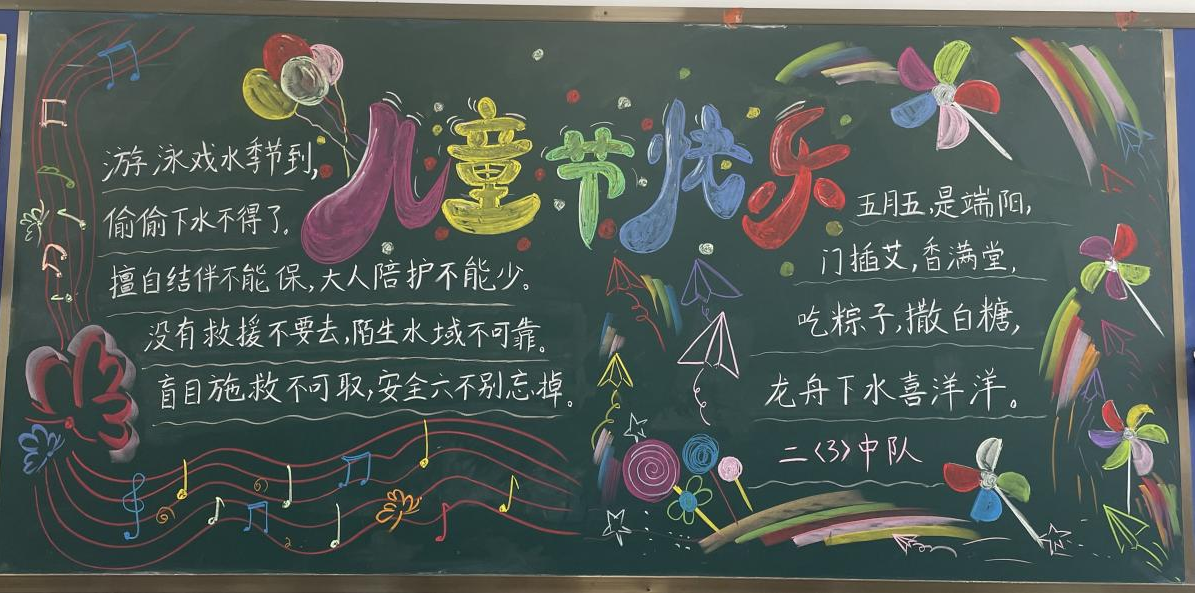 儿童节快乐
游泳戏水季节到,
偷偷下水不得了。
擅自结伴不能保,大人陪护不能少。
没有救援不要去,陌生水域不可靠。
盲目施救不可取,安全六不别忘掉。
五月五,是端阳,
门插艾,香满堂,
吃粽子,撒白糖,
龙舟下水喜洋洋。
二〈3〉中队